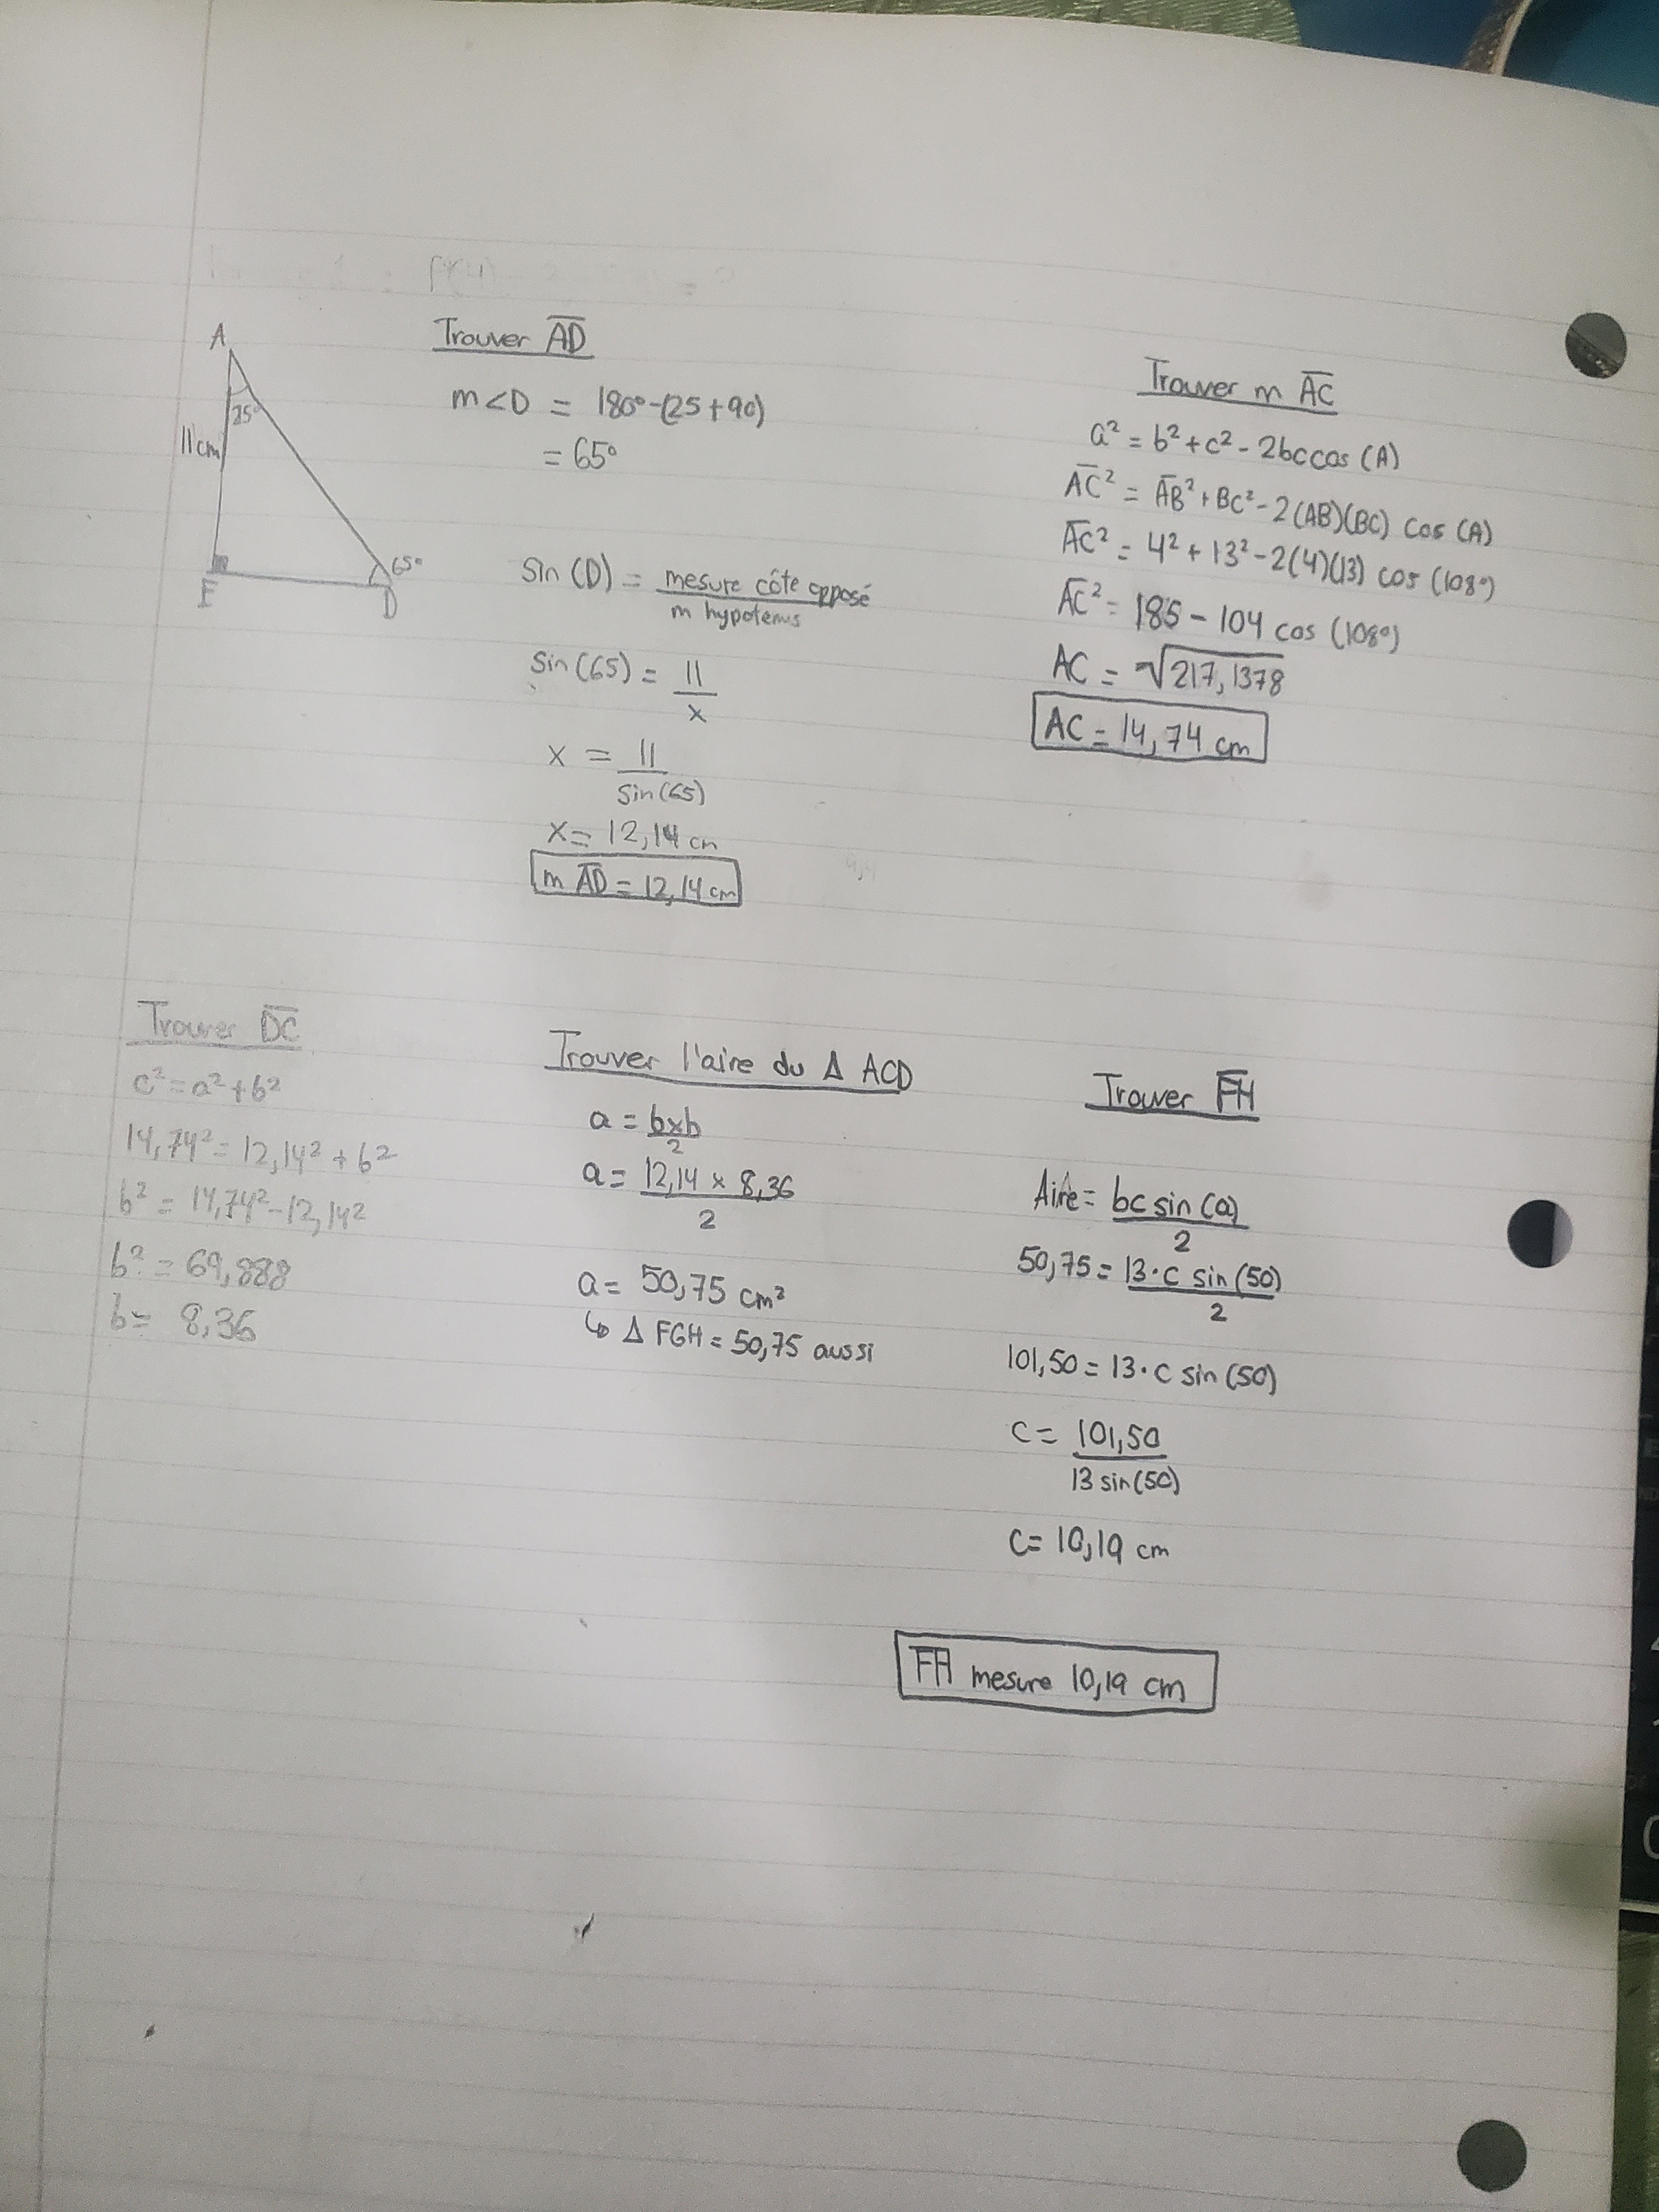 A
25°
11cm
E
D
65°
Trouver AD
m<D = 180°-(25+90)
= 65°
Sin (D) = mesure côte opposé
m hypotenus
Sin(65) = 11
x
x = 11
sin(65)
x= 12,14 cm
m AD = 12,14 cm
Trouver m AC
a² = b²+c²- 2bc cos (A)
AC² = AB²+BC²-2(AB)(BC) cos (A)
AC² = 4²+13²-2(4)(13) cos (108°)
AC² = 185 - 104 cos (108°)
AC = √217,1378
AC = 14,74 cm
Trouver DC
c²=a²+b²
14,74²= 12,14²+b²
b² = 14,74²-12,14²
b² = 69,888
b= 8,36
Trouver l'aire du Δ ACD
a = bxb
2
a= 12,14 x 8,36
2
a= 50,75 cm²
↳ Δ FGH = 50,75 aussi
Trouver FH
Aire= bc sin (a)
2
50,75= 13·c sin(50)
2
101,50= 13·c sin(50)
c= 101,50
13 sin(50)
c= 10,19 cm
FH mesure 10,19 cm